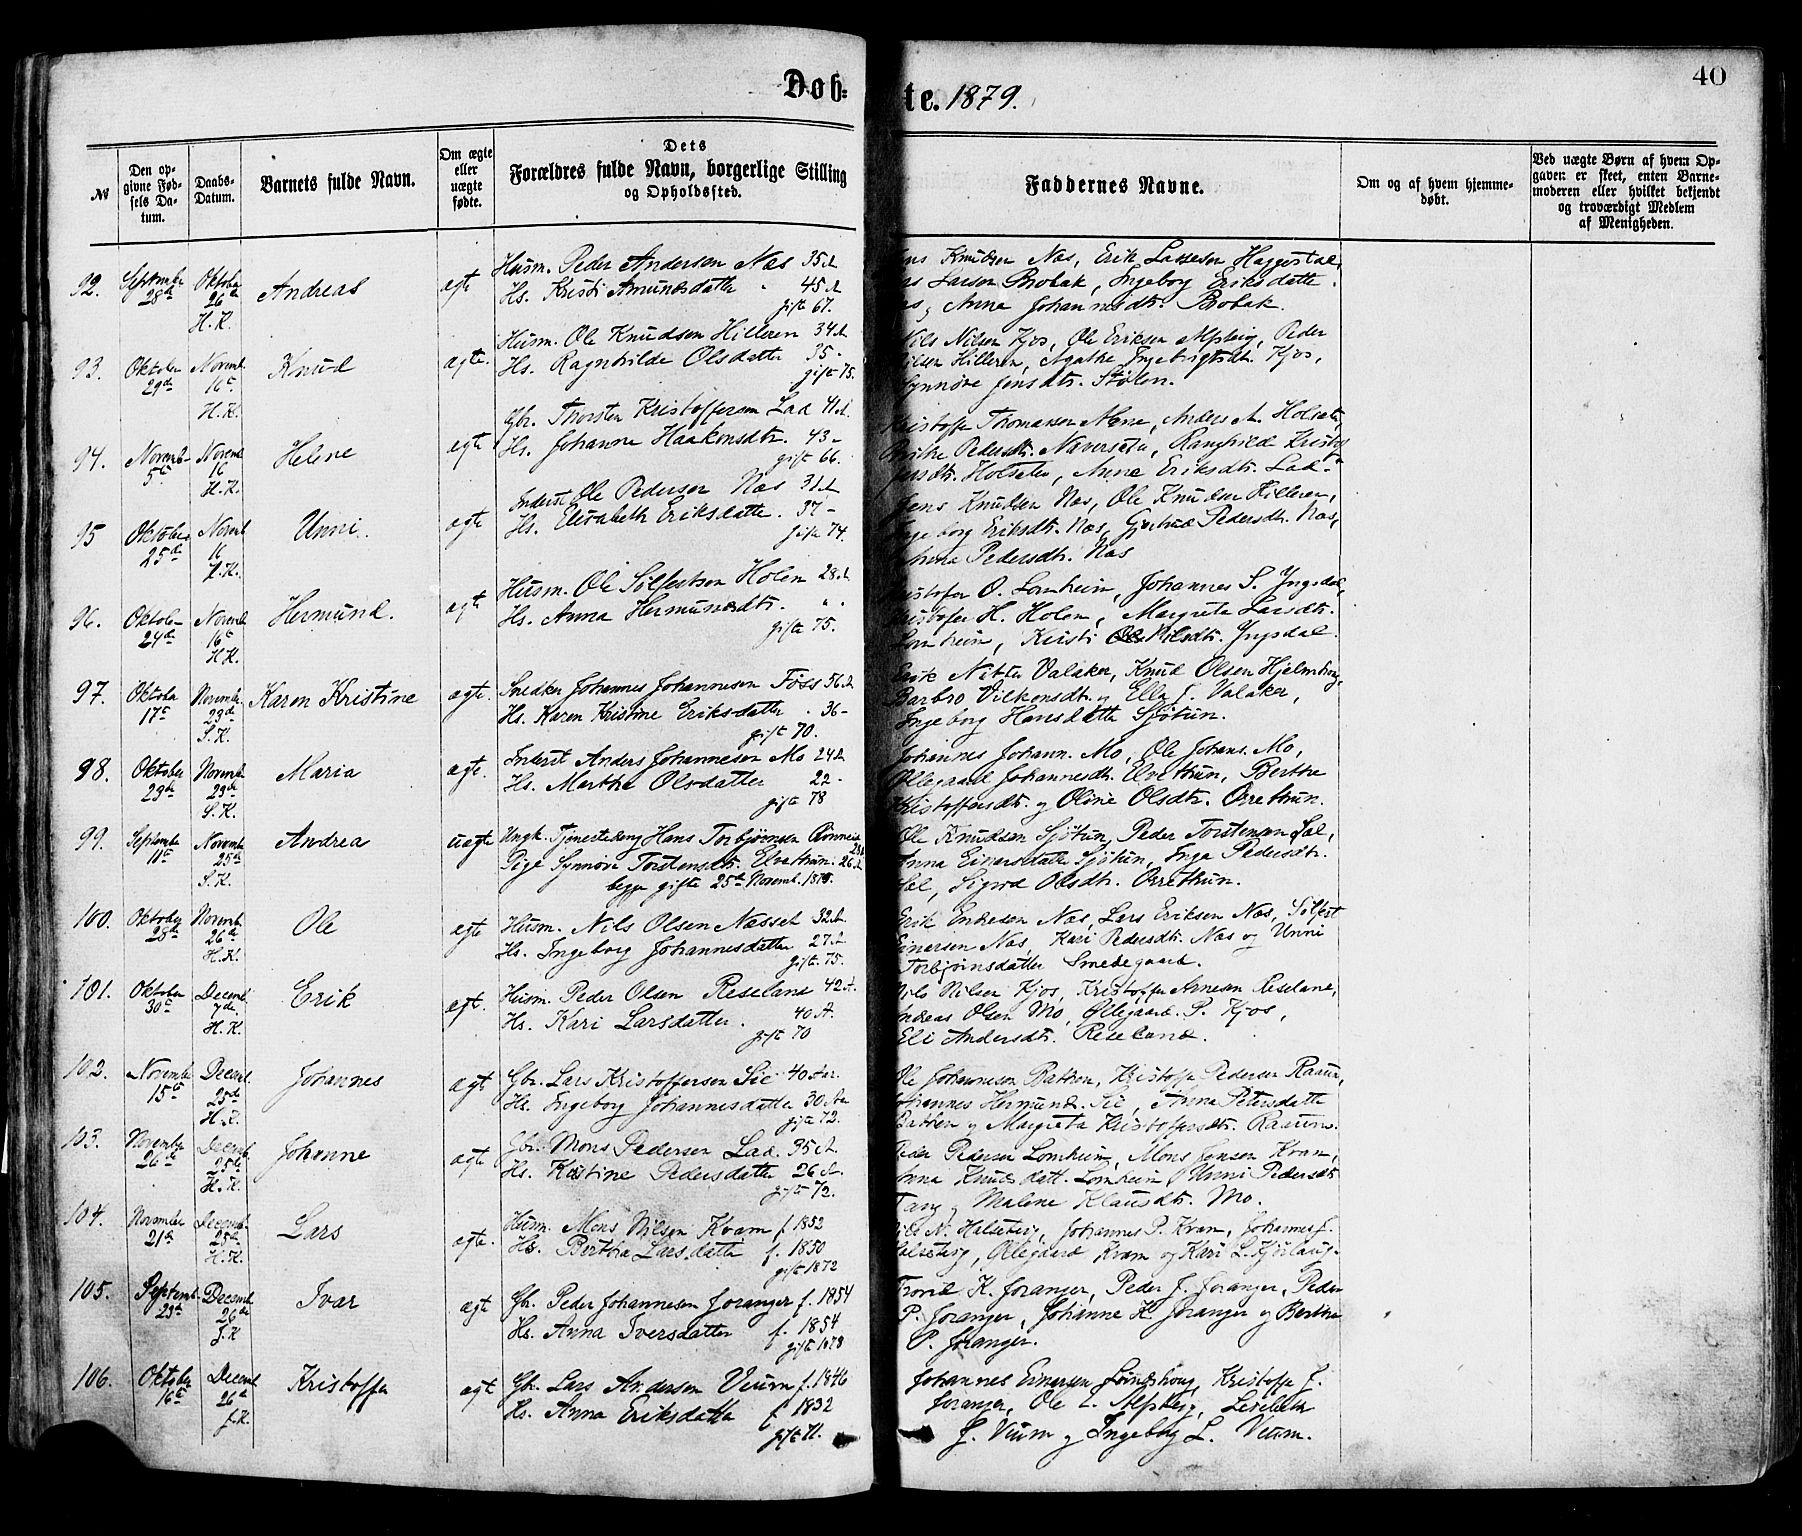 40
Døb- te. 1879.
№
Den op-
givne Fød-
sels Da-
tum.
Daabs-
Datum.
Barnets fulde Navn.
Om ægte
eller
uægte
fødte.
Dets
Forældres fulde Navn, borgerlige Stilling
og Opholdssted.
Faddernes Navne.
Om og af hvem hjemme-
døbt.
Ved uægte Børn af hvem Op-
gaven er skeet, enten Barne-
moderen eller hvilket bekjendt
og troværdigt Medlem
af Menigheden.
92. Septembr 28de Oktober 26de H. K. Andreas ægte
Husm. Peder Andersen Næs 35 A
Hs. Kristi Amundsdatter 45 A
gift 67.
Knudsen Næs, Erik Lassesen Haggestal,
Larsen Brobak, Ingeborg Eriksdatte
Anna Johannesdt. Brobak.
93. Oktober 29de Novemb. 16de H. K. Knud ægte.
Husm. Ole Knudsen Hilleren 34 A
Hs. Ragnhilde Olsdatte 35 -
gift 75.
Nils Nilsen Kjos, Ole Eriksen Alsberg, Peder
Nilsen Hilleren, Agathe Ingebrigtsdt. Kjos,
Synnøve Jensdt. Stølen.
94. Novemb 5te Novemb 16 H. K. Helene ægte
Gbr. Thorsten Kristoffersen Lad 41 A.
Hs. Johanne Haakonsdtr. 43 -
gift 66.
Kristoffe Thomassen Næne, Anders A. Holsete,
Pedersdt. Næverseten, Ranghilde Kristof
fersdt. Holseter, Anne Eriksdt. Lad.
95 Oktober 25de Novemb 16 H. K. Unni. ægte
Inderst Ole Pedersen Næs 31 A
Hs. Elisabeth Eriksdatte. 37 -
gift 74.
Jens Knudsen Næs, Ole Knudsen Hilleren,
Ingeborg Eriksdt. Næs, Gjertrud Pedersdt. Næs,
Pedersdt. Næs
96. Oktober 24de Novemb 16de H. K. Hermund. ægte
Husm. Ole Sølfestsen Holen 28 A.
Hs. Anna Hermundsdt. " "
gift 75.
Kristofer O. Lomheim, Johannes S. Yngsdal,
Kristofer H. Holen, Margrete Larsdt.
Lomheim, Kristi Nilsdt. Yngsdal.
97. Oktober 17de Novembr. 23de S. K. Karen Kristine ægte.
Snedker Johannes Johannesen Føss 56 A
Hs. Karen Kristine Eriksdatter. 36 -
gift 70.
Erik Nitter Valaker, Knud Olsen Hjelmberg,
Barbro Vilkensdt. og Ella J. Valaker,
Ingeborg Hansdatte Sjøtun.
98. Oktober 29de Novembr 23de S. K. Maria ægte.
Inderst Anders Johannesen Mo 24 A
Hs. Marthe Olsdatter 22 -
gift 78
Johannes Johann. Mo, Ole Johans. Mo,
Ollegaard Johannesdt. Elvethun, Berthe
Kristoffersdt. og Oline Olsdt. Ørrethun.
99. Septembr 11te Novembr 25de S. K. Andrea uægte
Ungk. Tjenestedreng Hans Torbjørnsen
Pige Synnøve Torstensdt. Elvethun. 26 A
begge gifte 25de Novemb. 1879.
Ole Knudsen Sjøtun, Peder Torstensen Sæl,
Anna Einarsdatte Sjøtun, Inga Pedersdt.
Sæl, Sigrid Olsdt. Ørrethun.
100. Oktober 28de Novemb 26de H. K. Ole ægte
Husm. Nils Olsen Næsset 32 A.
Hs. Ingeborg Johannesdatter 27 A
gift. 75.
Erik Endresen Næs, Lars Eriksen Næs, Sølfest
Einersen Næs, Kari Pedersdt. Næs og Unni
Torbjørnsdatter Smedegaard.
101. Oktober 30te Decemb. 7de H. K. Erik ægt.
Husm. Peder Olsen Reseland 42 A.
Hs. Kari Larsdatter. 40 A.
gift 70
Nils Nilsen Kjos, Kristoffer Arnesen Reseland,
Andreas Olsen Mo, Ollegaard P. Kjos,
Eli Andersdt. Reseland.
102. Novembr 15de Decemb. 25de H. K. Johannes ægt
Gbr. Lars Kristoffersen Sie 40 Aar.
Hs. Ingeborg Johannesdatte 30 Aar
gift 72.
Ole Johannesen Bathen, Kristoffe Pedersen Raaum,
Johannes Hermunds. Sie, Anna Petersdatte
Bathen og Margreta Kristoffersdt. Raaum.
103. Novembr 26de Decemb. 25de H. K. Johanne ægt
Gbr. Mons Pedersen Lad. 35 A.
Hs. Kristine Pedersdatte 26 A.
gift 72.
Peder Pedersen Lomheim, Mons Jensen Kvam,
Anna Knudsdatt. Lomheim, Unni Pedersdt.
Tang og Malene Klausdt. Mo.
104. November 21de Decemb. 25de H. K. Lars ægt.
Husm. Mons Nilsen Kvam f. 1852
Hs. Bertha Larsdatte f. 1850
gift 1872
Nils N. Halsebig, Johannes P. Kvam, Johannes J.
Halsebig, Ollegaard Kvam og Kari L. Kjilaug.
105. Septemb 23de Decemb 26de J. K Ivar ægt
Gbr. Peder Johannesen Joranger f. 1854
Hs. Anna Iversdatter f. 1854
gift 1878
Trond K. Joranger, Peder J. Joranger, Peder
P. Joranger, Johanne K. Joranger og Berthe
P. Joranger.
106. Oktober 16de Decemb 26de J. K. Kristoffe ægt
Gbr. Lars Andersen Veum f. 1846
Hs. Anna Eriksdatte f 1832
gift 71.
Johannes Einersen, Kristoffe J.
Joranger, Ole L. Alsberg, Lisebeth
J. Veum og Ingeborg L. Veum.